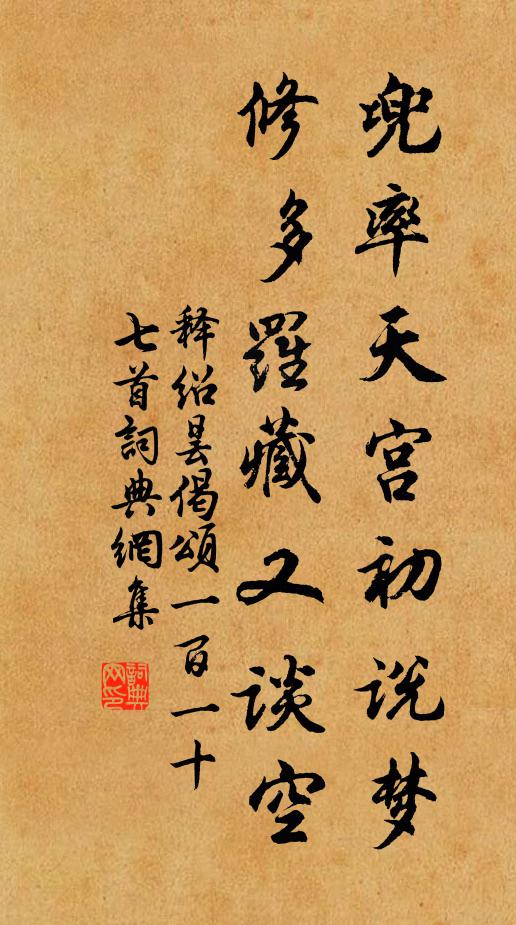 兜率天宫初说梦
修多羅藏又谈空
释绍昙偈颂一百一十
七首詞典網集
詞典网印